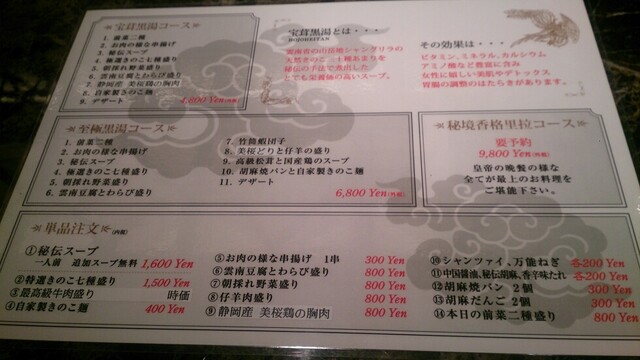 宝茸黒湯コース
1. 前菜二種
2. お肉の様な串揚げ
3. 秘伝スープ
4. 極選きのこ七種盛り
5. 朝採れ野菜盛り
6. 雲南豆腐とわらび盛り
7. 静岡産 美桜鶏の胸肉
8. 自家製きのこ麺
9. デザート
4,800 Yen
宝茸黒湯とは・・・
雲南省の山岳地シャングリラの
秘伝の手法で煮出した
とても栄養価の高いスープ。
その効果は・・・
ビタミン、ミネラル、カルシウム
アミノ酸など豊富に含み
女性に嬉しい美肌やデトックス
胃腸の調整のはたらきがあります。
至極黒湯コース
1. 前菜二種
2. お肉の様な串揚げ
3. 秘伝スープ
4. 極選きのこ七種盛り
5. 朝採れ野菜盛り
6. 雲南豆腐とわらび盛り
7. 竹筒蝦団子
8. 美桜どりと仔羊の盛り
9. 高級松茸と国産鶏のスープ
10. 胡麻焼パンと自家製きのこ麺
11. デザート
6,800 Yen(外税)
秘境香格里拉コース
要予約
9,800 Yen(外税)
皇帝の晩餐の様な
全てが最上のお料理を
ご堪能下さい。
単品注文(内税)
①秘伝スープ
一人前 追加スープ無料 1,600 Yen
②特選きのこ七種盛り 1,500 Yen
③最高級牛肉盛り 時価
④自家製きのこ麺 400 Yen
⑤お肉の様な串揚げ 1串 300 Yen
⑥雲南豆腐とわらび盛り 800 Yen
⑦朝採れ野菜盛り 800 Yen
⑧仔羊肉盛り 800 Yen
⑨静岡産 美桜鶏の胸肉 800 Yen
⑩シャンツァイ、万能ねぎ 各200 Yen
⑪中国醤油、秘伝胡麻、香辛味だれ 各200 Yen
⑫胡麻焼パン 2個 300 Yen
⑬胡麻だんご 2個 300 Yen
⑭本日の前菜二種盛り 800 Yen